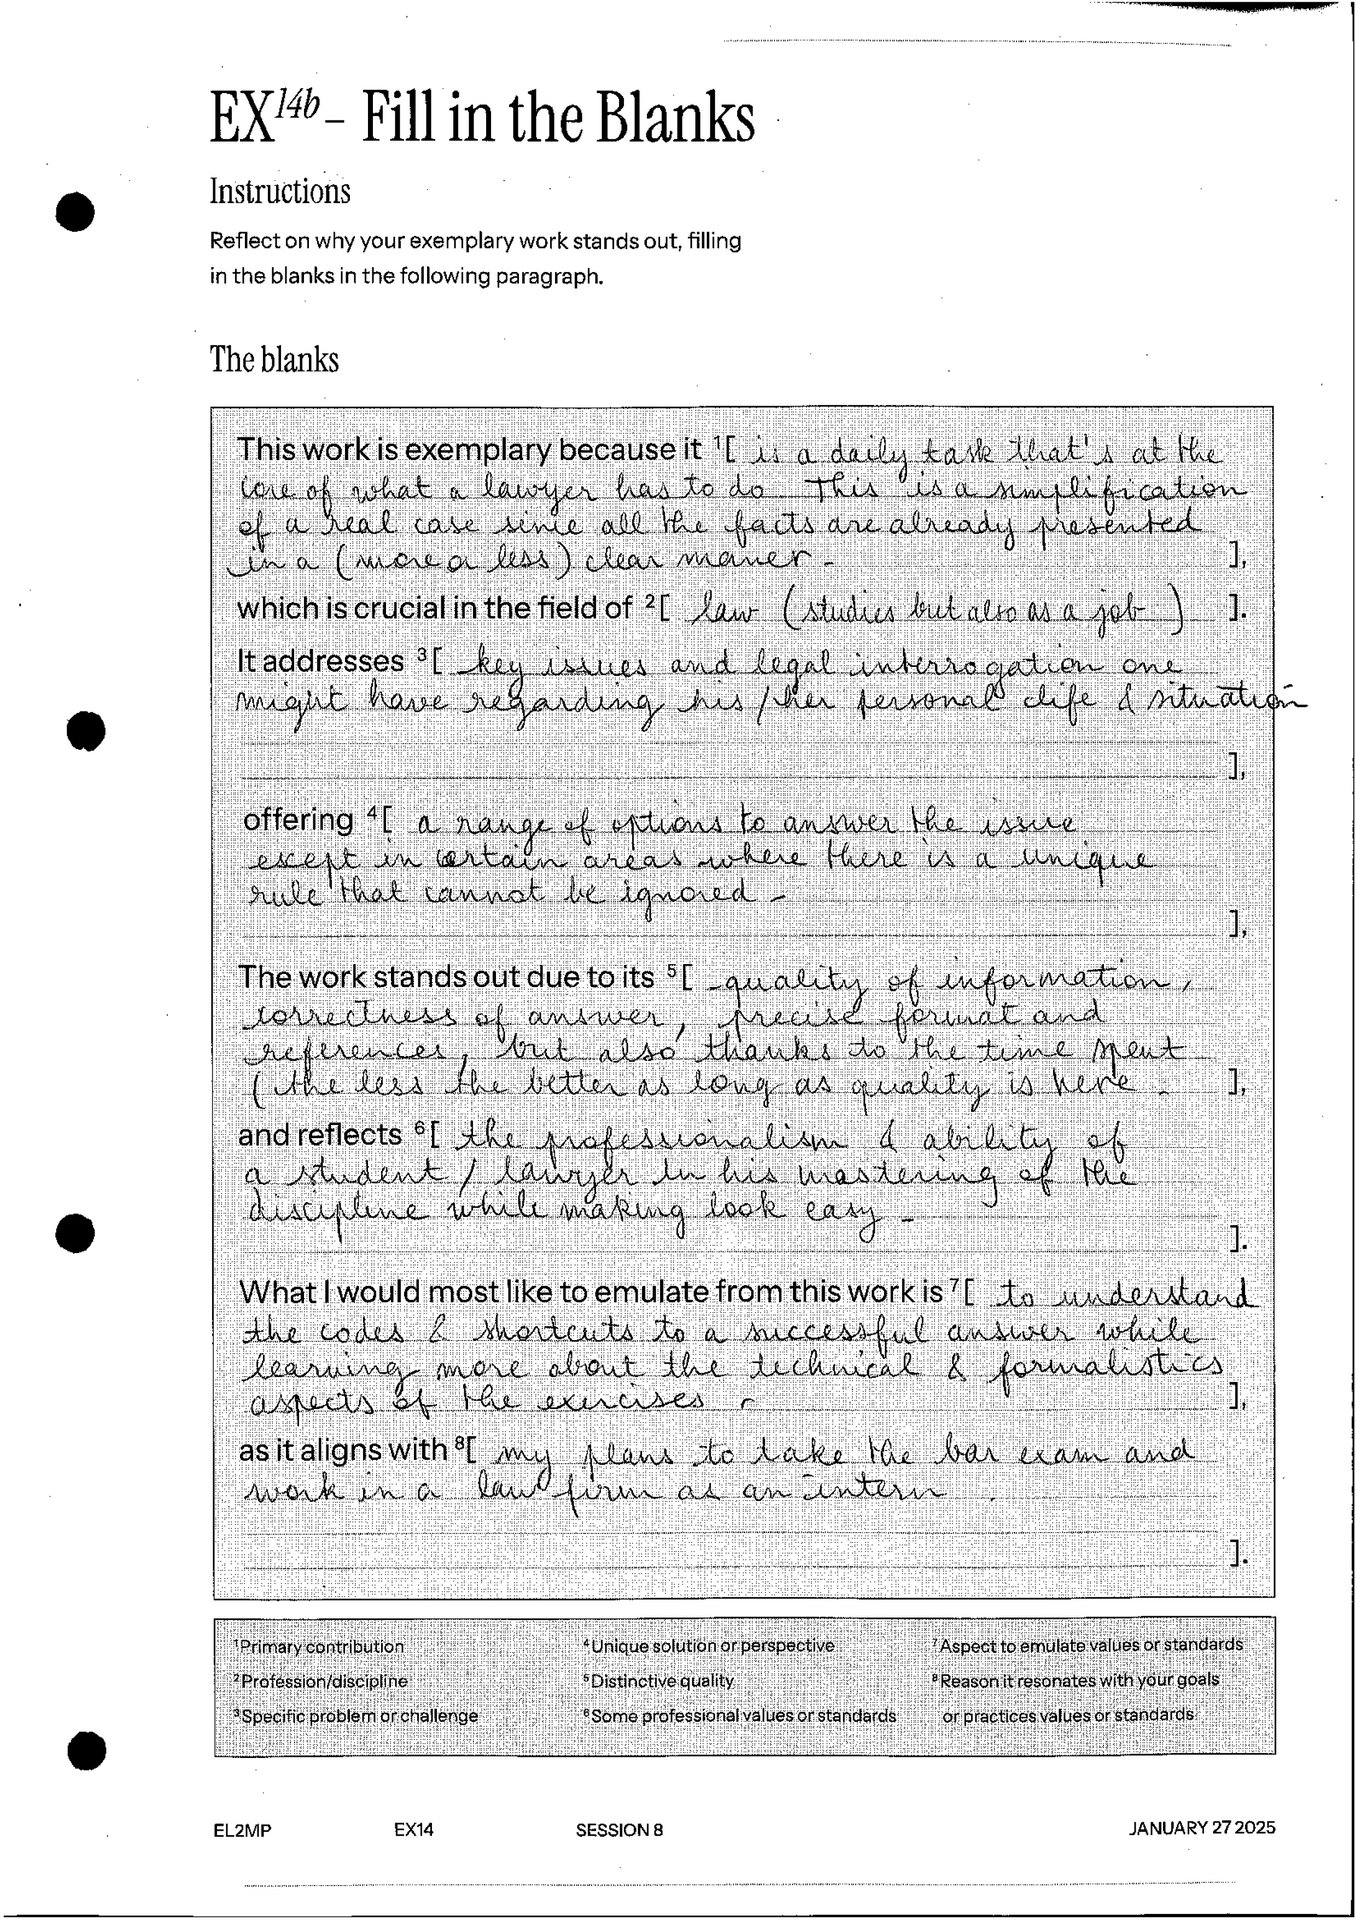 EX14b – Fill in the Blanks
Instructions
Reflect on why your exemplary work stands out, filling
in the blanks in the following paragraph.
The blanks
This work is exemplary because it ¹[ is a daily task that's at the
core of what a lawyer has to do This is a simplification
of a real case since all the facts are already presented
in a (more or less) clear maner - ],
which is crucial in the field of ²[ law (studies but also as a job ) ].
It addresses ³[ key issues and legal interrogation one
might have regarding his/her personal life & situation
],
offering ⁴[ a range of options to answer the issue
except in certain areas where there is a unique
rule that cannot be ignored -
],
The work stands out due to its ⁵[ quality of information,
correctness of answer, precise format and
references, but also thanks to the time spent
(the less the better as long as quality is here - ],
and reflects ⁶[ the professionalism & ability of
a student / lawyer in his mastering of the
discipline while making look easy -
].
What I would most like to emulate from this work is ⁷[ to understand
the codes & shortcuts to a successful answer while
learning more about the technical & formalistics
aspects of the exercises - ],
as it aligns with ⁸[ my plans to take the bar exam and
work in a law firm as an intern .
].
¹Primary contribution
²Profession/discipline
³Specific problem or challenge
⁴Unique solution or perspective
⁵Distinctive quality
⁶Some professional values or standards
⁷Aspect to emulate values or standards
⁸Reason it resonates with your goals
or practices values or standards
EL2MP EX14 SESSION 8 JANUARY 27 2025